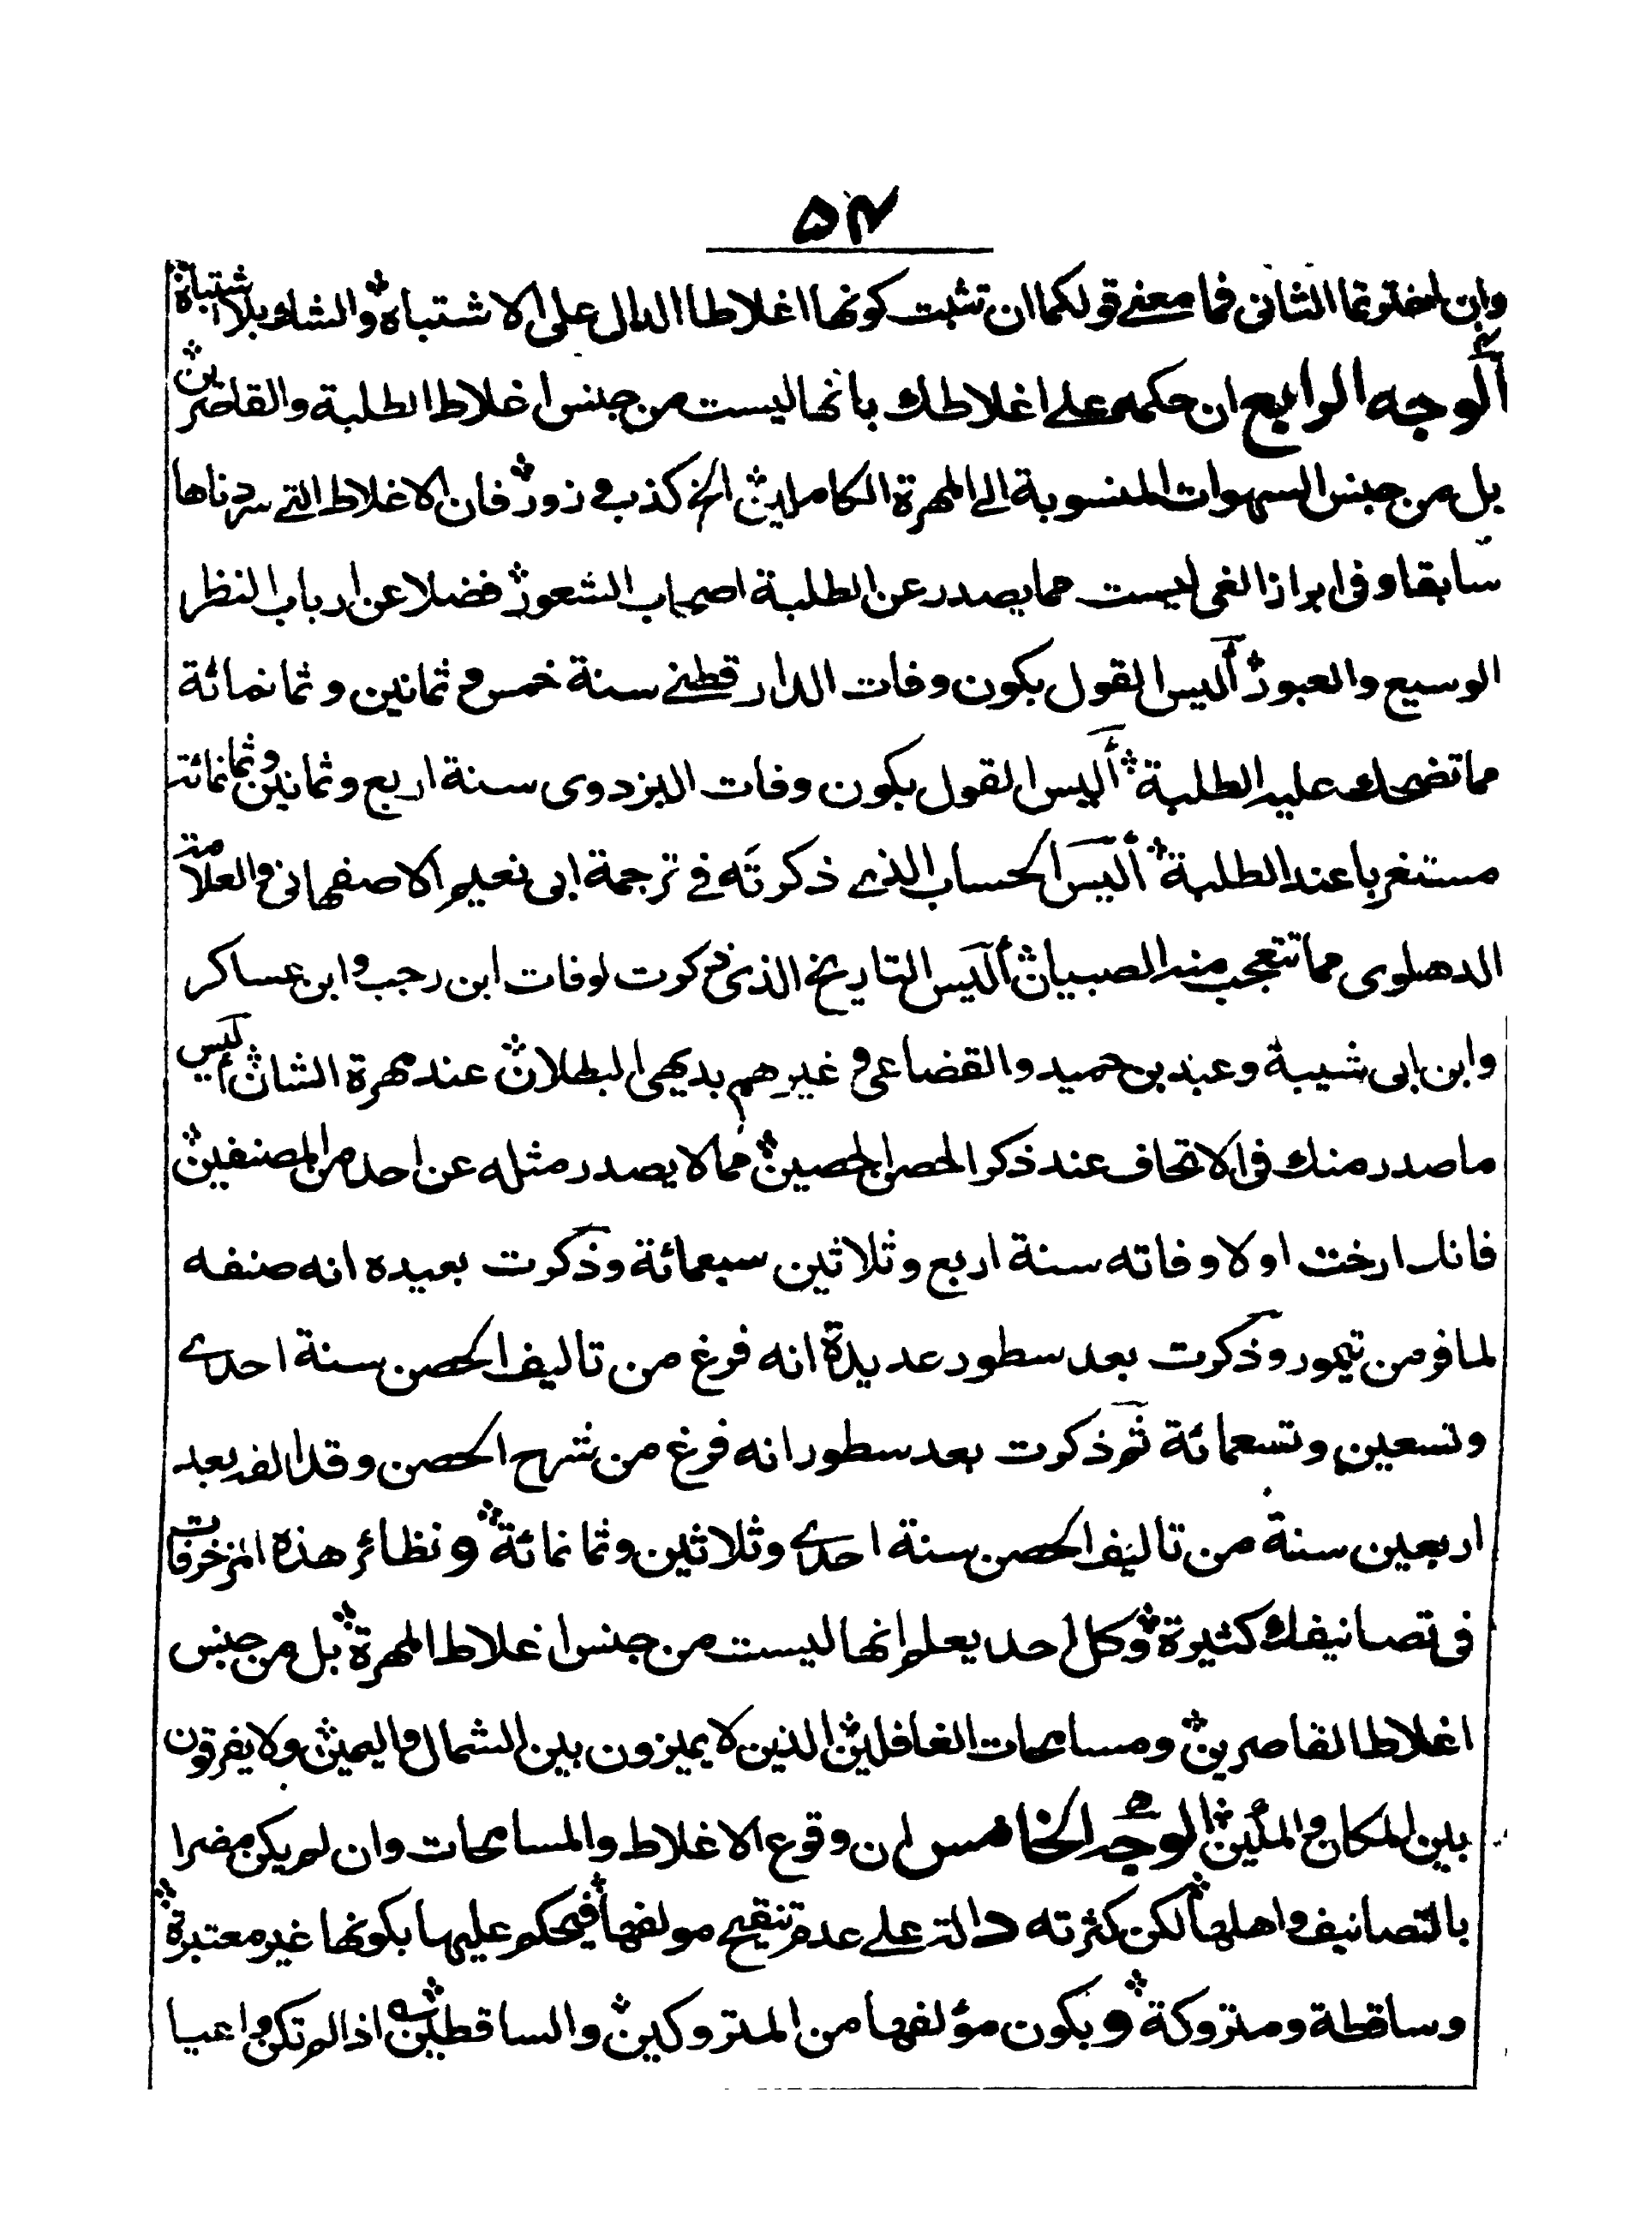 ۵۴
وان اخترتما الثانی فما معنے قولکما ان تثبت کونها اغلاطا الدال علی الاشتباه والشک بلا اشتباه
الوجه الرابع ان حکمه علے اغلاطک بانها لیست من جنس اغلاط الطلبة والقاصرین
بل من جنس السهوات المنسوبة الی المهرة الکاملین الخ کذب و زور فان الاغلاط التے سردناها
سابقا و فی ابراز الغی لیست مما یصدر عن الطلبة اصحاب الشعور فضلا عن ارباب النظر
الوسیع والعبور ألیس القول بکون وفات الدارقطنے سنة خمس و ثمانین و ثمانمائة
مما تضحک علیه الطلبة ألیس القول بکون وفات البزدوی سنة اربع و ثمانین و ثمانمائة
مستغربا عند الطلبة ألیس الحساب الذے ذکرته فے ترجمة ابی نعیم الاصفهانی و العلامة
الدهلوی مما تتعجب منه الصبیان ألیس التاریخ الذی ذکرت لوفات ابن رجب و ابن عساکر
وابن ابی شیبة و عبد بن حمید والقضاعی و غیرهم بدیهی البطلان عند مهرة الشان ألیس
ما صدر منک فی الاتحاف عند ذکر الحصن الحصین مما لا یصدر مثله عن احد من المصنفین
فانک ارخت اولا وفاته سنة اربع و ثلاثین سبعمائة وذکرت بعیده انه صنفه
لما فر من تیمور وذکرت بعد سطور عدیدة انه فرغ من تالیف الحصن سنة احدے
وتسعین وتسعمائة ثم ذکرت بعد سطور انه فرغ من شرح الحصن وقد الفه بعد
اربعین سنة من تالیف الحصن سنة احدے وثلاثین وثمانمائة و نظائر هذه المزخرفات
فی تصانیفک کثیرة وکل احد یعلم انها لیست من جنس اغلاط المهرة بل من جنس
اغلاط القاصرین ومسامحات الغافلین الذین لا یمیزون بین الشمال والیمین ولا یفرقون
بین المکان و المکین الوجه الخامس ان وقوع الاغلاط والمسامحات وان لم یکن مضرا
بالتصانیف واهلها لکن کثرته دالة علے عدم تنقیح مولفها فیحکم علیها بکونها غیر معتبرة
وساقطة ومتروکة و بکون مؤلفها من المتروکین والساقطین اذا لم تکن واعیا